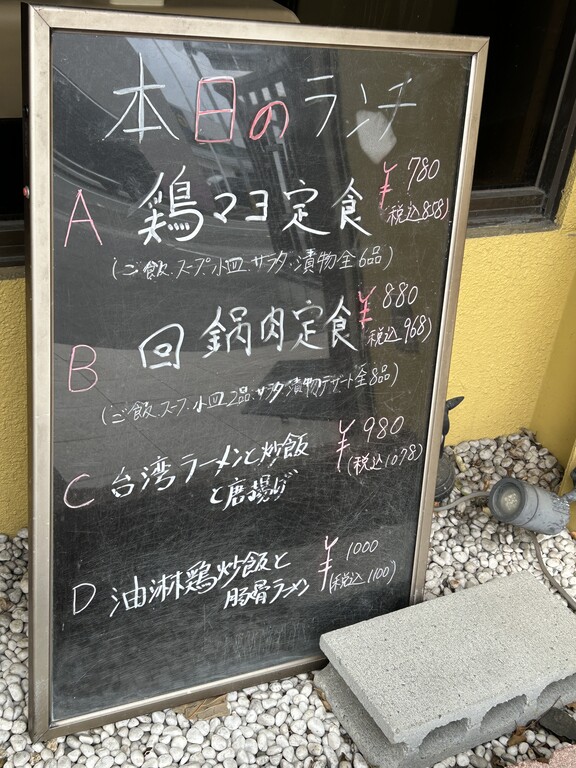 本日のランチ
A 鶏マヨ定食 ¥780
(税込858)
(ご飯.スープ.小皿.サラダ.漬物全6品)
B 回鍋肉定食 ¥880
(税込968)
(ご飯.スープ.小皿2品.サラダ.漬物デザート全8品)
C 台湾ラーメンと炒飯 ¥980
と唐揚げ (税込1078)
D 油淋鶏炒飯と ¥1000
豚骨ラーメン (税込1100)